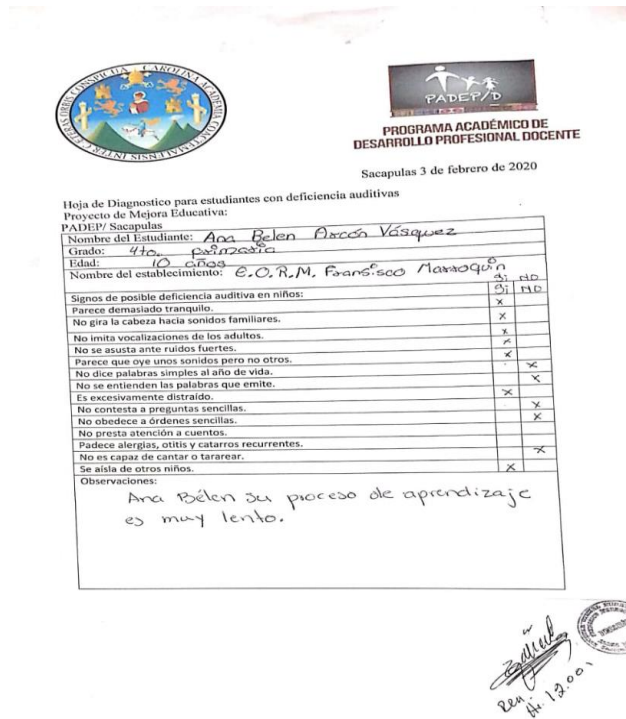 CAROLINA ACADEMIA COACTEMALENSIS INTER CÆTERAS ORBIS CONSPICUA
PADEP/D
PROGRAMA ACADÉMICO DE
DESARROLLO PROFESIONAL DOCENTE
Sacapulas 3 de febrero de 2020
Hoja de Diagnostico para estudiantes con deficiencia auditivas
Proyecto de Mejora Educativa:
PADEP/ Sacapulas
Nombre del Estudiante: Ana Belen Arcón Vásquez
Grado: 4to. primaria
Edad: 10 años
Nombre del establecimiento: E.O.R.M. Fransisco Marroquín
Si NO
Signos de posible deficiencia auditiva en niños: Si NO
Parece demasiado tranquilo. x
No gira la cabeza hacia sonidos familiares. x
No imita vocalizaciones de los adultos. x
No se asusta ante ruidos fuertes. x
Parece que oye unos sonidos pero no otros. x
No dice palabras simples al año de vida. x
No se entienden las palabras que emite. x
Es excesivamente distraído. x
No contesta a preguntas sencillas. x
No obedece a órdenes sencillas. x
No presta atención a cuentos.
Padece alergias, otitis y catarros recurrentes.
No es capaz de cantar o tararear. x
Se aísla de otros niños. x
Observaciones:
Ana Bélen su proceso de aprendizaje
es muy lento.